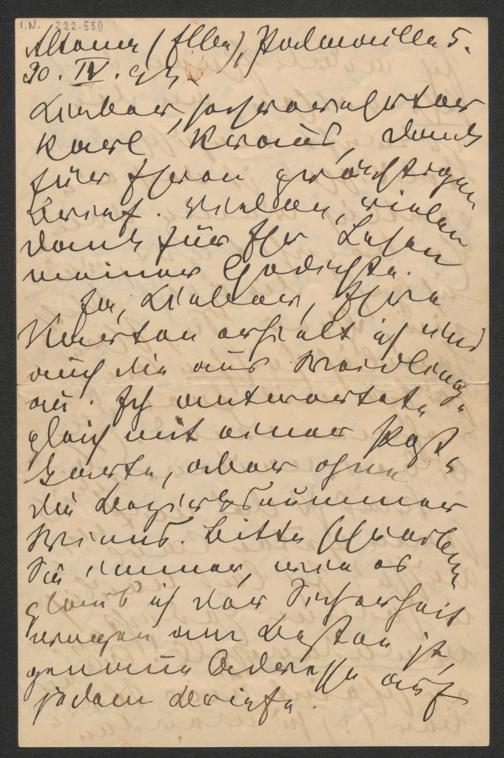 I.N. 222.550
Altona (Elbe), Palmaille 5.
30. IV.
Lieber, sehr verehrter
Karl Kraus, Dank
für Ihren prächtigen
Brief. Vielen, vielen
Dank für Ihr Lesen
meiner Gedichte.
Ja, Lieber, Ihre
Karten erhielt ich und
auch die aus Weidling-
au. Ich antwortete
gleich mit einer Post-
karte, aber ohne
die Bezirksnummer
Wiens. Bitte schreiben
Sie immer, wie es
glaub ich der Sicherheit
wegen am Besten ist,
genaue Adresse auf
jedem Briefe.